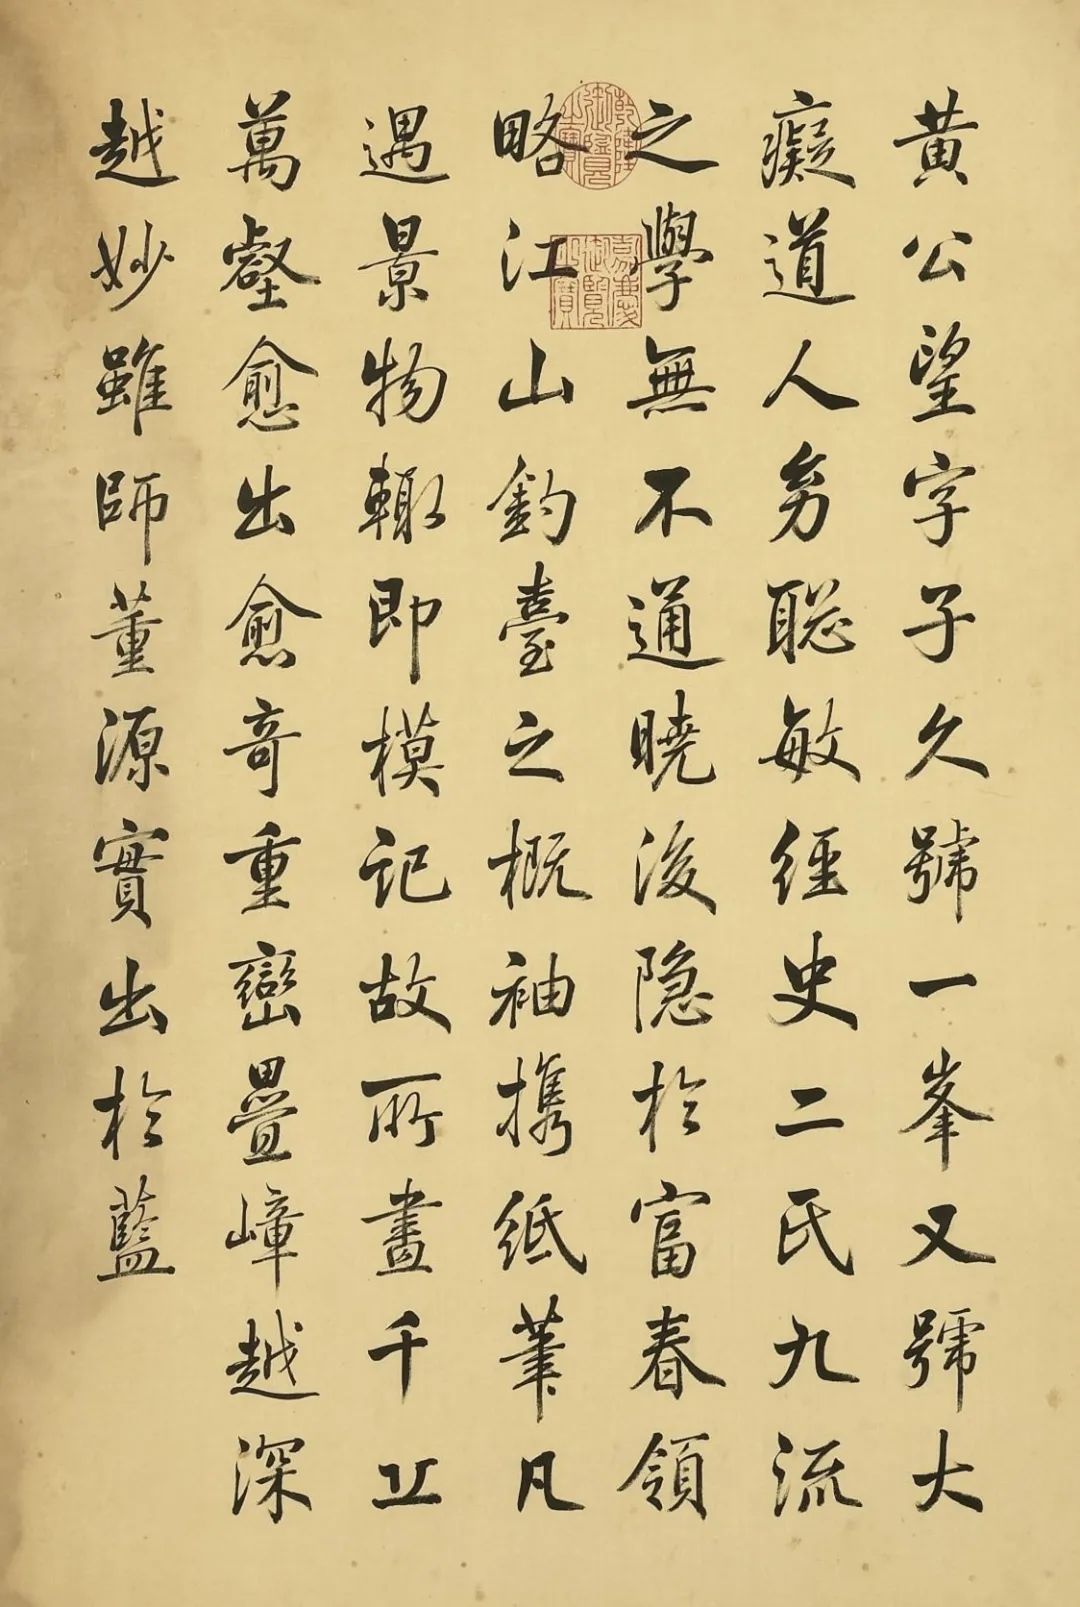 黃公望字子久號一峯又號大
癡道人穷聡敏經史二氏九流
之學無不通曉後隐於富春領
略江山釣臺之概袖攜紙筆凡
遇景物輙即模記故所畫千丘
萬壑愈出愈奇重巒疊嶂越深
越妙雖師董源實出於藍
乾隆御覽之寶
嘉慶御覽之寶